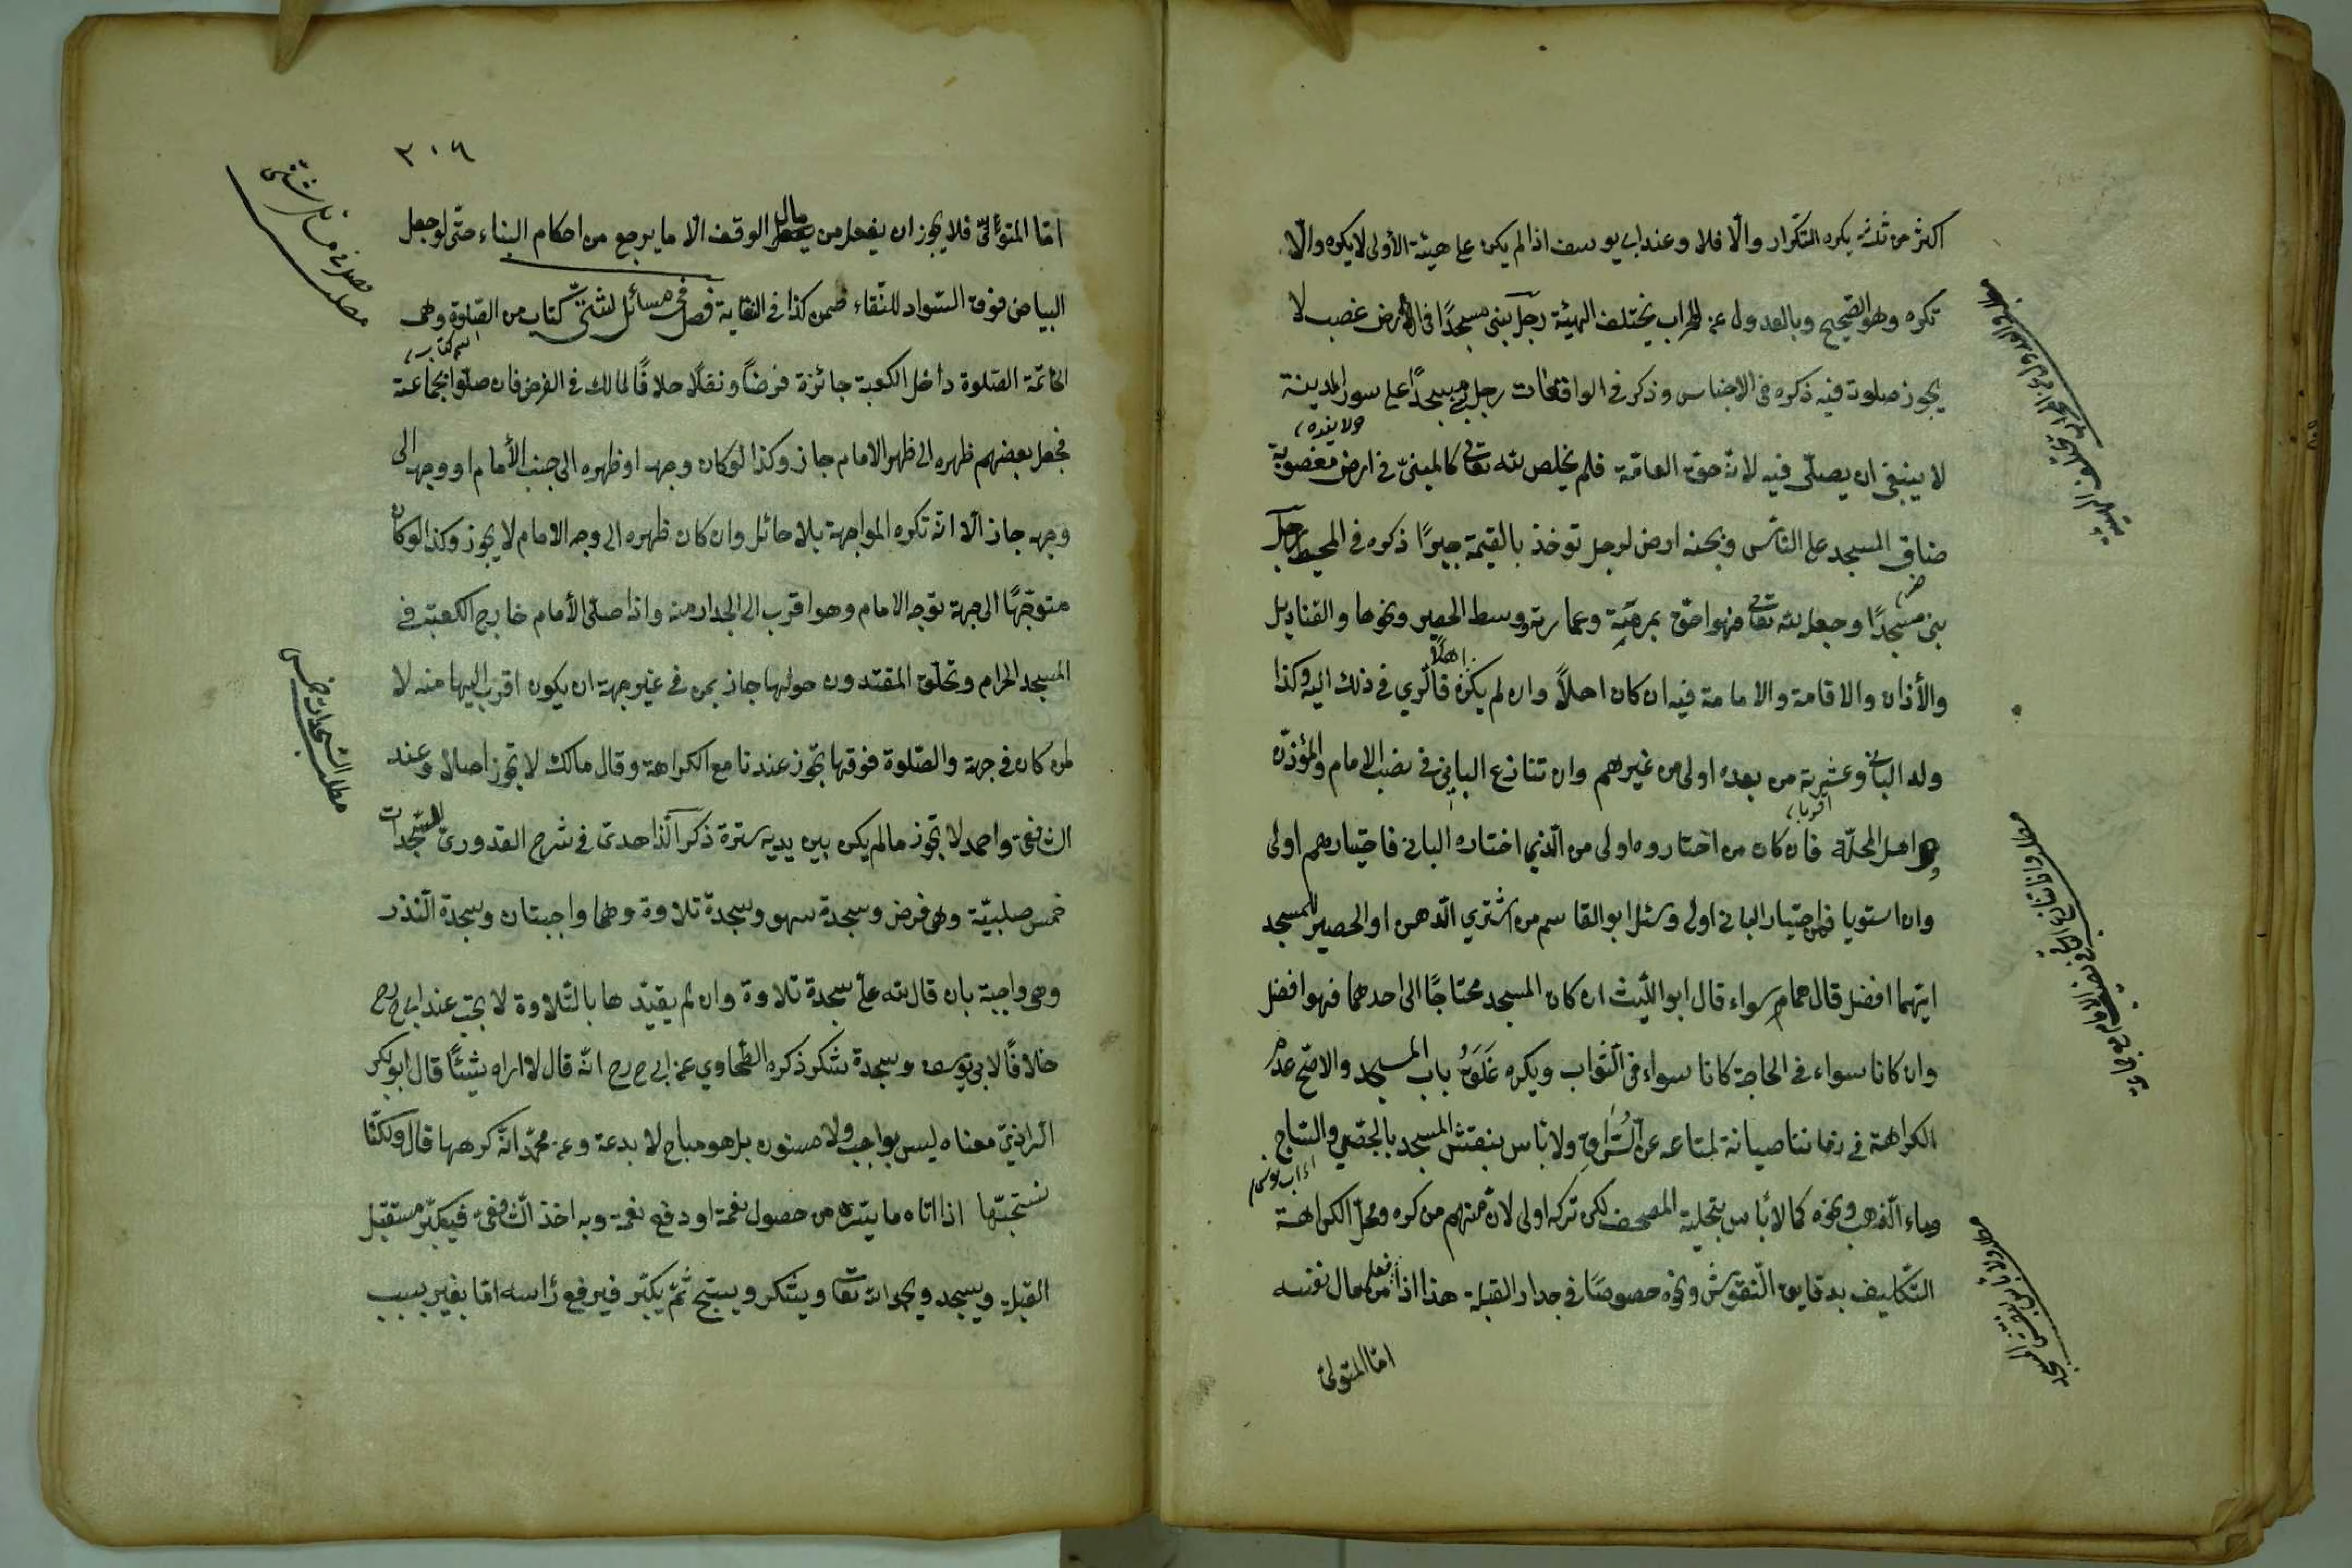 اكثر من ثلثة يكره التكرار والّا فلا وعند ابى يوسف اذا لم يكن على هيئة الأولى لا يكره والّا
تكره وهو الصّحيح وبالعدول عن المحراب يختلف الهيئة رجل بنى مسجدًا فى الأرض غصب لا
يجوز صلوة فيه ذكره فى الاجناس وذكر فى الواقعات رجل بنى مسجدًا على سور المدينة
لا ينبغى ان يصلّى فيه لانّه حقّ العامّة فلم يخلص لله تعالى كالمبنىّ فى ارض مغصوبة
ضاق المسجد على النّاس وبجنبه ارض لرجل توخذ بالقيمة جبرًا ذكره فى المحيط رجل
بنى مسجدًا وجعل لله تعالى فهو احقّ بمرمّته وعمارته وبسط الحصير ونحوها والقناديل
والأذان والاقامة والامامة فيه ان كان اهلاً وان لم يكن اهلاً فالرّي فى ذلك اليه وكذا
ولد البانى وعشيرته من بعده اولى من غيرهم وان تنازع البانى فى نصب الامام والمؤذّن
اقرباء
و اهل المحلّة فان كان من اختاروه اولى من الّذي اختاره البانى فاختيارهم اولى
وان استويا فاختيار البانى اولى وسئل ابو القاسم من اشترى الدّهن او الحصير للمسجد
ايّهما افضل قال هما سواء قال ابو اللّيث ان كان المسجد محتاجًا الى احدهما فهو افضل
وان كانا سواء فى الحاجة كانا سواء فى الثّواب ويكره غَلَقُ باب المسجد والاصحّ عدم
الكراهة فى زماننا صيانة لمتاعه عن السُّرّاقِ ولا بأس بنقش المسجد بالجصّ والسّاج
وماء الذّهب ونحوه كما لا بأس بتحلية المصحف لكن تركه اولى لانّ منهم من كره ومحلّ الكراهة
التّكليف بدقايق النّقوش ونحوه خصوصًا فى جدار القبلة هذا اذا فعل من مال نفسه
امّا المتولىّ
٢٠٦
امّا المتولّى فلا يجوز ان يفعل من مال الوقف الّا ما يرجع من احكام البناء حتّى لو جعل
البياض فوق السّواد للنّقاء ضمن كذا فى النقاية فصل فى مسائل لشتّى كتاب من الصّلوة وهى
الخاتمة الصّلوة داخل الكعبة جائزة فرضًا ونفلًا خلافًا لمالك فى الفرض فان صلّوا بجماعة
فجعل بعضهم ظهره الى ظهر الامام جاز وكذا لو كان وجهه او ظهره الى جنب الأمام او وجهه الى
وجهه جاز الّا انّه تكره المواجهة بلا حائل وان كان ظهره الى وجه الامام لا يجوز وكذا لو كان
متوجّهًا الى جهة توجه الامام وهو اقرب الى الجدار منه واذا صلّى الأمام خارج الكعبة فى
المسجد الحرام وتحلّق المقتدون حولها جاز لمن فى غير جهة ان يكون اقرب اليها منه لا
لمن كان فى جهة والصّلوة فوقها تجوز عندنا مع الكراهة وقال مالك لا تجوز اصلا وعند
الشافعى واحمد لا تجوز ما لم يكن بين يديه سترة ذكر الزّاهدى فى شرح القدورى السّجدات
خمس صلبيّة وهى فرض وسجدة سهو وسجدة تلاوة وهما واجبتان وسجدة النّذر
وهى واجبة بان قال لله علىّ سجدة تلاوة وان لم يقيّدها بالتّلاوة لا يجب عند ابى ح رح
خلافًا لابى يوسف وسجدة شكر ذكره الطّحاوي عن ابى ح رح انّه قال لا اراه شيئًا قال ابو بكر
الرّازىّ معناه ليس بواجب ولا مسنون بل هو مباح لا بدعة وعن محمّد انّه كرهها قال ولكنّا
نستحبّها اذا اتاه ما يسّره من حصول نعمة او دفع نقمة وبه اخذ الشافعىّ فيكبّر مستقبل
القبلة ويسجد ويحمد الله تعالى ويشكر ويسبّح ثمّ يكبّر فيرفع رأسه امّا بغير سبب
مطلب السّجدات خمس